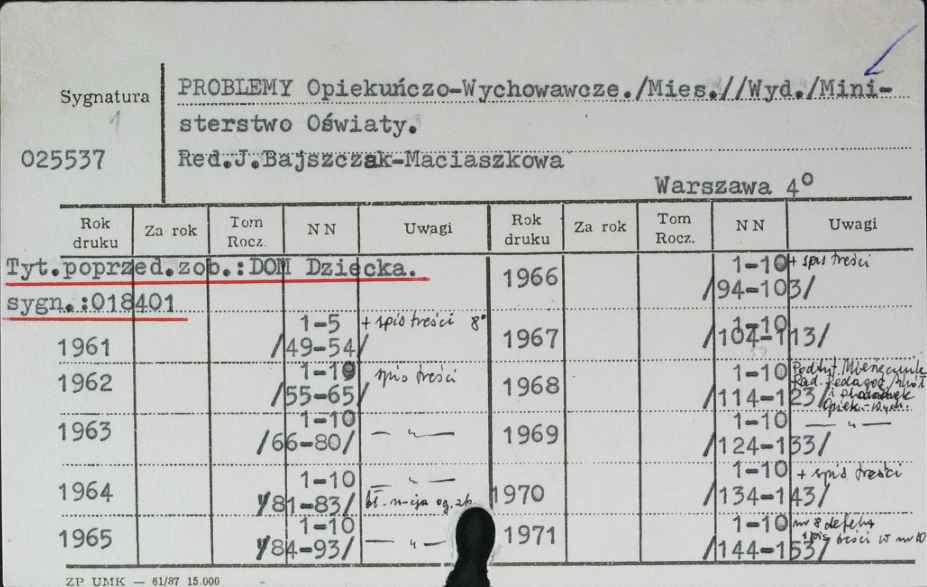 Sygnatura
PROBLEMY Opiekuńczo-Wychowawcze./Mies.//Wyd./Mini-
sterstwo Oświaty.
025537
Red.J.Bajszczak-Maciaszkowa
Warszawa 4°
Rok druku Za rok Tom Rocz. NN Uwagi Rok druku Za rok Tom Rocz. NN Uwagi
Tyt.poprzed.zob.:DOM Dziecka.
sygn.:018401
1961 1-5 /49-54/ + spis treści 8°
1962 1-10 /55-65/ spis treści
1963 1-10 /66-80/ — „ —
1964 1-10 /81-83/ — „ — bł. n-cja og. zb.
1965 1-10 /84-93/ — „ —
1966 1-10 /94-103/ + spis treści
1967 1-10 /104-113/
1968 1-10 /114-123/ Podtyt. Miesięcznik Rad Pedagog. i Opiek.-Wych.
1969 1-10 /124-133/ — „ —
1970 1-10 /134-143/ + spis treści
1971 1-10 /144-153/ nr 8 defekt spis treści w nr 10
ZP UMK — 61/87 15.000